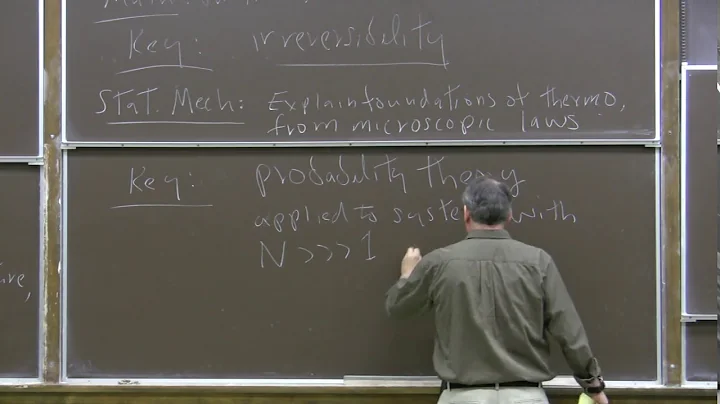 Key: irreversibility
Stat. Mech: Explain foundations of thermo,
from microscopic laws
Key: probability theory
applied to systems with
N >>> 1